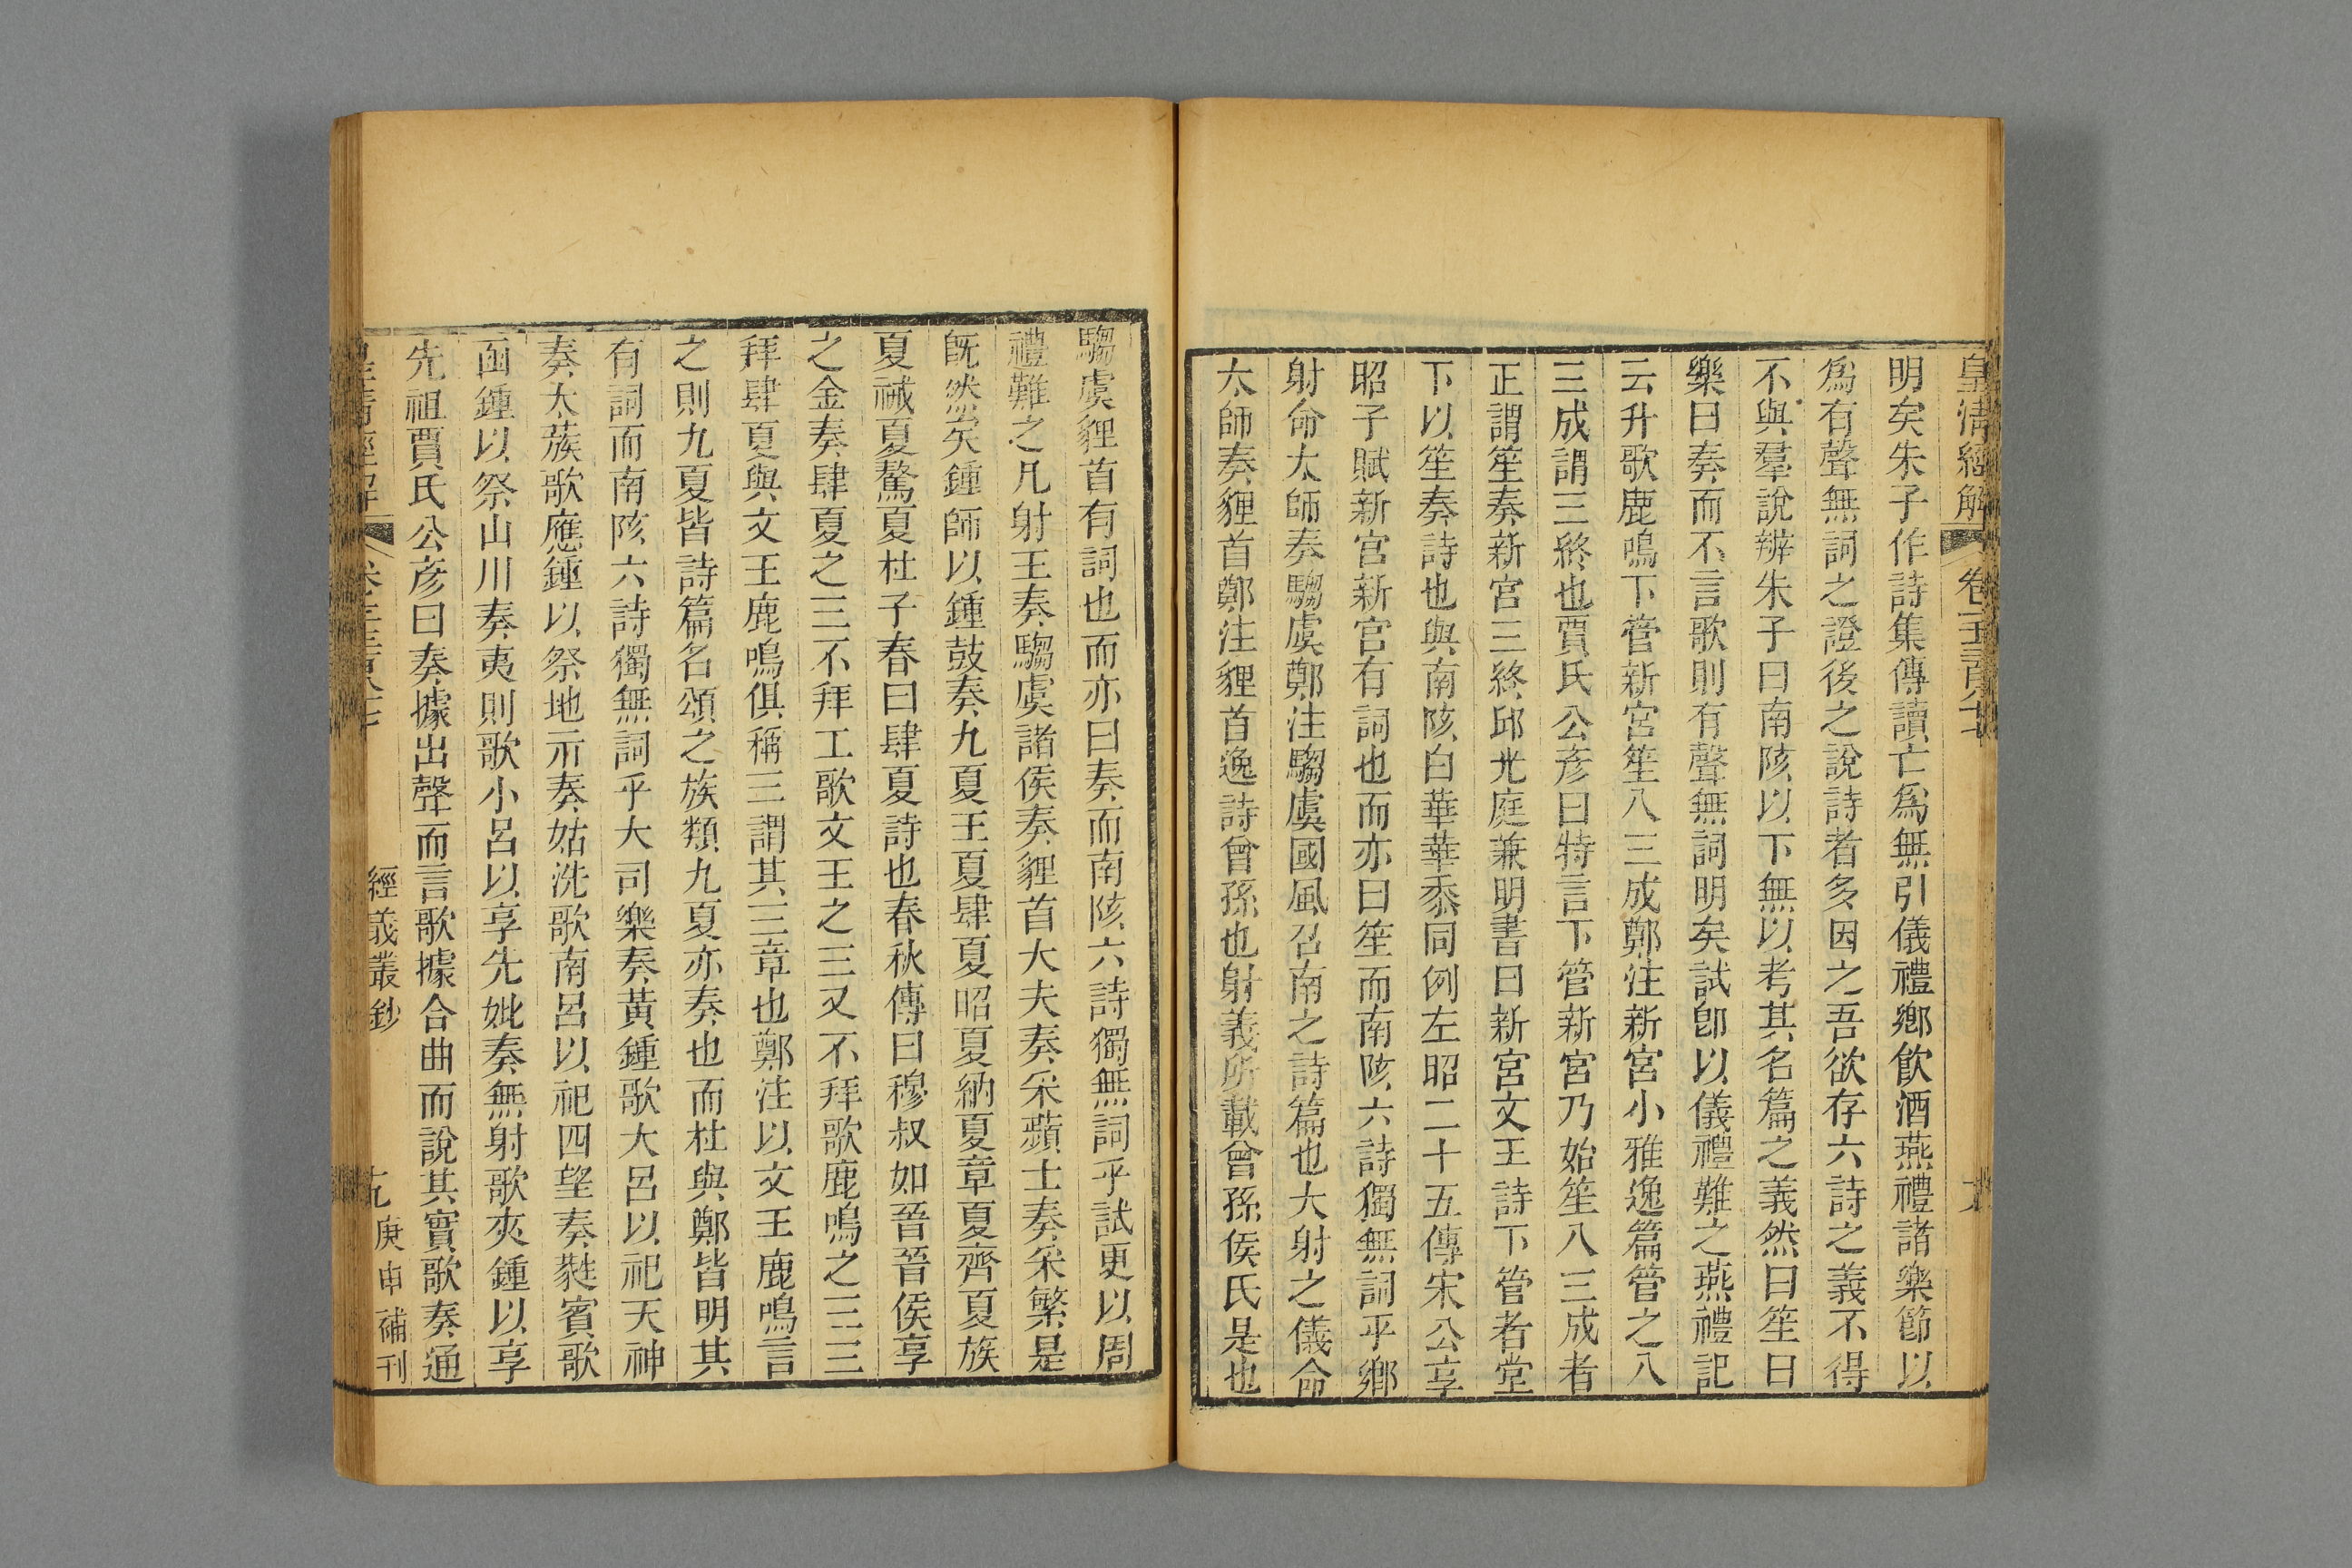 皇清經解
卷一千三百八十七
明矣朱子作詩集傳讀亡爲無引儀禮鄉飲酒燕禮諸樂節以
爲有聲無詞之證後之說詩者多因之吾欲存六詩之義不得
不與羣說辨朱子曰南陔以下無以考其名篇之義然曰笙曰
樂曰奏而不言歌則有聲無詞明矣試卽以儀禮難之燕禮記
云升歌鹿鳴下管新宮笙入三成鄭注新宮小雅逸篇管之入
三成謂三終也賈氏公彥曰特言下管新宮乃始笙入三成者
正謂笙奏新宮三終邱光庭兼明書曰新宮文王詩下管者堂
下以笙奏詩也與南陔白華華黍同例左昭二十五傳宋公享
昭子賦新宮新宮有詞也而亦曰笙而南陔六詩獨無詞乎鄉
射命太師奏騶虞鄭注騶虞國風召南之詩篇也大射之儀命
太師奏貍首鄭注貍首逸詩曾孫也射義所載曾孫侯氏是也
騶虞貍首有詞也而亦曰奏而南陔六詩獨無詞乎試更以周
禮難之凡射王奏騶虞諸侯奏貍首大夫奏采蘋士奏采繁是
旣然矣鍾師以鍾鼓奏九夏王夏肆夏昭夏納夏章夏齊夏族
夏祴夏驁夏杜子春曰肆夏詩也春秋傳曰穆叔如晉晉侯享
之金奏肆夏之三不拜工歌文王之三又不拜歌鹿鳴之三三
拜肆夏與文王鹿鳴俱稱三謂其三章也鄭注以文王鹿鳴言
之則九夏皆詩篇名頌之族類九夏亦奏也而杜與鄭皆明其
有詞而南陔六詩獨無詞乎大司樂奏黃鍾歌大呂以祀天神
奏太蔟歌應鍾以祭地示奏姑洗歌南呂以祀四望奏蕤賓歌
函鍾以祭山川奏夷則歌小呂以享先妣奏無射歌夾鍾以享
先祖賈氏公彥曰奏據出聲而言歌據合曲而說其實歌奏通
皇清經解
經義叢鈔
庚申補刊